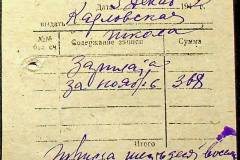 Дата 194 г.
выдать Карловская
школа
№№ Содержание записи Сумма
Зарплата
за ноябрь 368
Итого
триста шестьдесят восемь